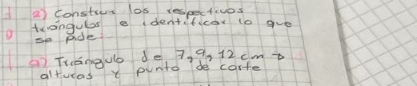 2) Construir los respectivos
triángulos e identificar lo que
se pide:
a) Triángulo de 7, 9, 12 cm
alturas y punto de corte